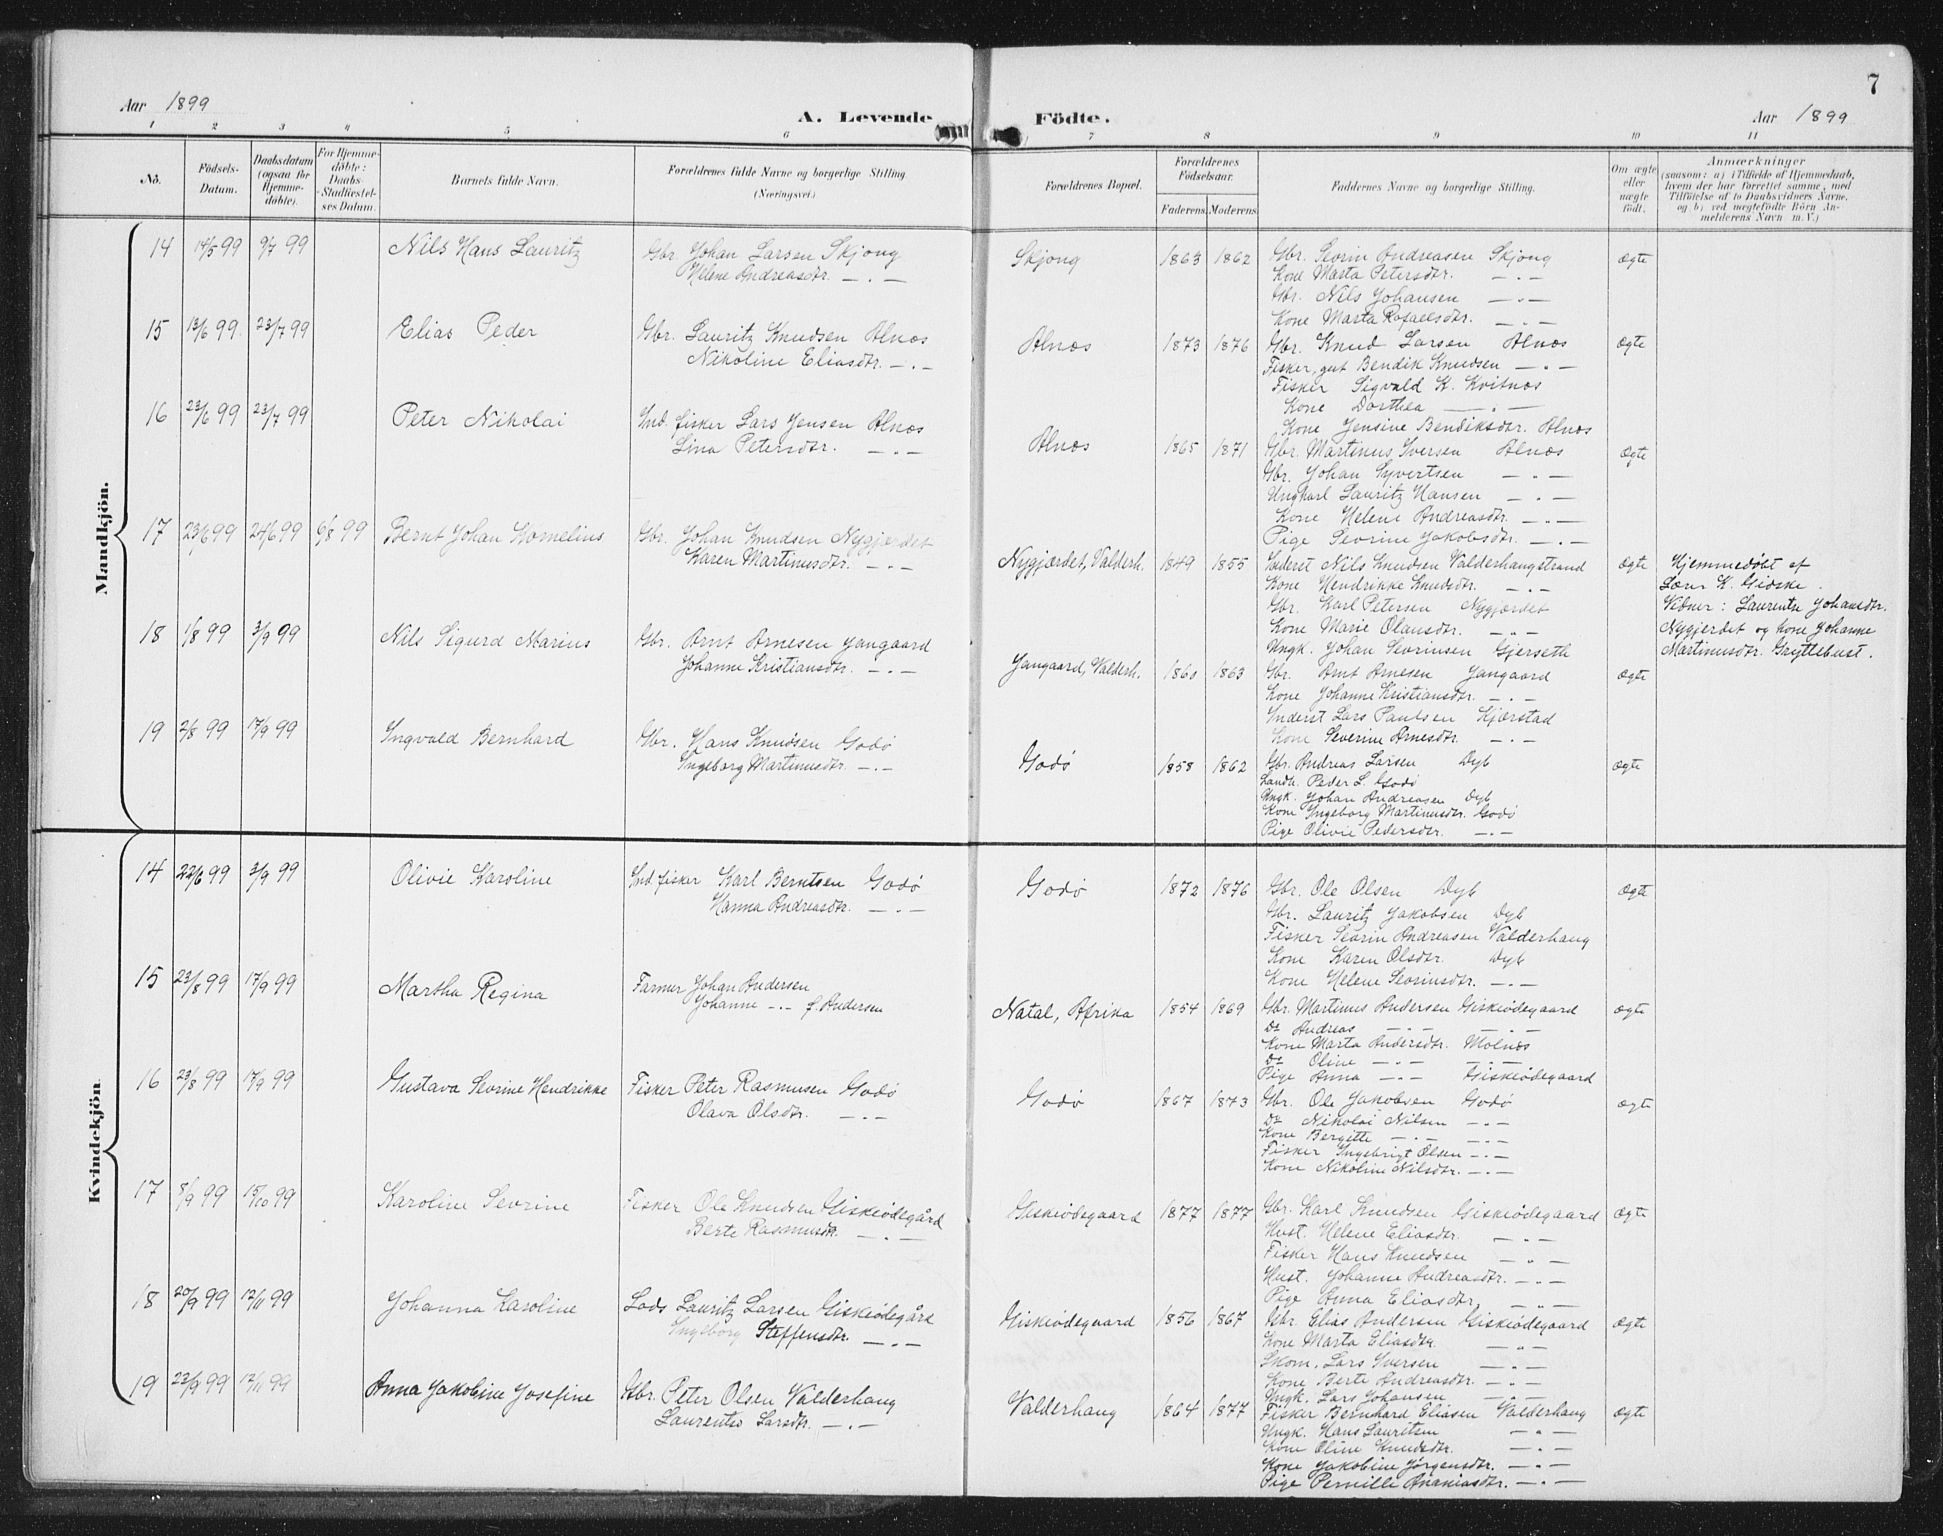 7
Aar 1899
A. Levende Födte.
Aar 1899
1 2 3 4 5 6 7 8 9 10 11
No.
Födsels-Datum.
Daabsdatum (ogsaa for Hjemmedöbte).
For Hjemmedöbte: Daabs-Stadfæstelses Datum.
Barnets fulde Navn.
Forældrenes fulde Navne og borgerlige Stilling.
(Næringsvei.)
Forældrenes Bopæl.
Forældrenes Födselsaar.
Faderens. Moderens.
Faddernes Navne og borgerlige Stilling.
Om ægte eller uægte födt.
Anmærkninger
(saasom: a) i Tilfælde af Hjemmedaab,
hvem der har forrettet samme, med
Tilföielse af to Daabsvidners Navne,
og b) ved uægtefödte Börn An-
melderens Navn m. V.)
Mandkjön.
14 14/5 99 9/7 99 Nils Hans Lauritz Gbr. Johan Larsen Skjong
Helene Andreasdtr. — " —
Skjong 1863 1862 Gbr. Sevrin Andreasen Skjong ægte
Kone Marta Petersdtr. — " —
Gbr. Nils Johansen — " —
Kone Marta Rafaelsdtr. — " —
15 13/6 99 23/7 99 Elias Peder Gbr. Lauritz Knudsen Alnæs
Nikoline Eliasdtr. — " —
Alnæs 1873 1876 Gbr. Knud Larsen Alnæs ægte
Fisker, gut Bendik Knudsen — " —
Fisker Sigvald K. Kvitnæs
Kone Dorthea — " —
Kone Jensine Bendiksdtr. Alnæs
16 23/6 99 23/7 99 Peter Nikolai Ind. fisker Lars Jensen Alnæs
Lina Petersdtr. — " —
Alnæs 1865 1871 Gbr. Martinus Iversen Alnæs ægte
Gbr. Johan Syvertsen — " —
Ungkarl Lauritz Hansen — " —
Kone Helene Andreasdtr. — " —
Pige Sevrine Jakobsdtr. — " —
17 23/6 99 24/6 99 6/8 99 Bernt Johan Kornelius Gbr. Johan Knudsen Nygjærdet
Karen Martinusdtr. — " —
Nygjærdet, Valderh. 1849 1855 Inderst Nils Knudsen Valderhaugstrand ægte
Kone Hendrikke Knudsdtr. — " —
Gbr. Karl Petersen Nygjærdet
Kone Marie Olausdtr. — " —
Ungk. Johan Sevrinsen Gjerseth
Hjemmedøbt af
Lærer K. Giske.
Vidner: Laurentse Johansdtr.
Nygjerdet og kone Johanne
Martinusdtr. Gryttebust.
18 1/8 99 3/9 99 Nils Sigurd Marius Gbr. Arnt Arnesen Yangaard
Johanne Kristiansdtr. — " —
Yangaard, Valderh. 1860 1863 Gbr. Arnt Arnesen Yangaard ægte
Kone Johanne Kristiansdtr. — " —
Inderst Lars Paulsen Kjærstad
Kone Severine Arnesdtr. — " —
19 2/8 99 17/9 99 Ingvald Bernhard Gbr. Hans Knudsen Godø
Ingeborg Martinusdtr. — " —
Godø 1858 1862 Gbr. Andreas Larsen Dyb ægte
Landh. Peder L. Godø
Ungk. Johan Andreasen Dyb
Kone Ingeborg Martinusdtr. Godø
Pige Olivie Pedersdtr. — " —
Kvindekjön.
14 22/6 99 3/9 99 Olivie Karoline Ind. fisker Karl Berntsen Godø
Hanna Andreasdtr. — " —
Godø 1872 1876 Gbr. Ole Olsen Dyb ægte
Gbr. Lauritz Jakobsen Dyb
Fisker Sevrin Andreasen Valderhaug
Kone Karen Olsdtr. Dyb
Kone Helene Sevrinsdtr. — " —
15 23/8 99 17/9 99 Martha Regina Farmer Johan Andersen
Johanne — " — f. Andersen
Natal, Afrika 1854 1869 Gbr. Martinus Andersen Giskeødegaard ægte
Do Andreas — " — — " —
Kone Marta Andersdtr. Molnæs
Do Oline — " — — " —
Pige Anna — " — Giskeødegaard
16 23/8 99 17/9 99 Gustava Sevrine Hendrikke Fisker Peter Rasmusen Godø
Olava Olsdtr. — " —
Godø 1867 1873 Gbr. Ole Jakobsen Godø ægte
Do Nikolai Nilsen — " —
Kone Bergitte — " — — " —
Fisker Ingebrigt Olsen — " —
Kone Nikoline Nilsdtr. — " —
17 8/9 99 15/10 99 Karoline Sevrine Fisker Ole Knudsen Giskeødegård
Berte Rasmusdtr. — " —
Giskeødegaard 1877 1877 Gbr. Karl Knudsen Giskeødegaard ægte
Hust. Helene Eliasdtr. — " —
Fisker Hans Knudsen — " —
Hust. Johanne Andreasdtr. — " —
Pige Anna Eliasdtr. — " —
18 20/9 99 12/11 99 Johanna Karoline Lods Lauritz Larsen Giskeødegård
Ingeborg Steffensdtr. — " —
Giskeødegaard 1856 1867 Gbr. Elias Andersen Giskeødegaard ægte
Kone Marta Eliasdtr. — " —
Skom. Lars Iversen — " —
Kone Berte Andreasdtr. — " —
Ungk. Lars Johansen — " —
19 23/9 99 12/11 99 Anna Jakobine Josefine Gbr. Peter Olsen Valderhaug
Laurentse Larsdtr. — " —
Valderhaug 1864 1877 Fisker Bernhard Eliasen Valderhaug ægte
Ungk. Hans Lauritsen — " —
Kone Oline Knudsdtr. — " —
Kone Jakobine Jørgensdtr. — " —
Pige Pernille Ananiasdtr. — " —